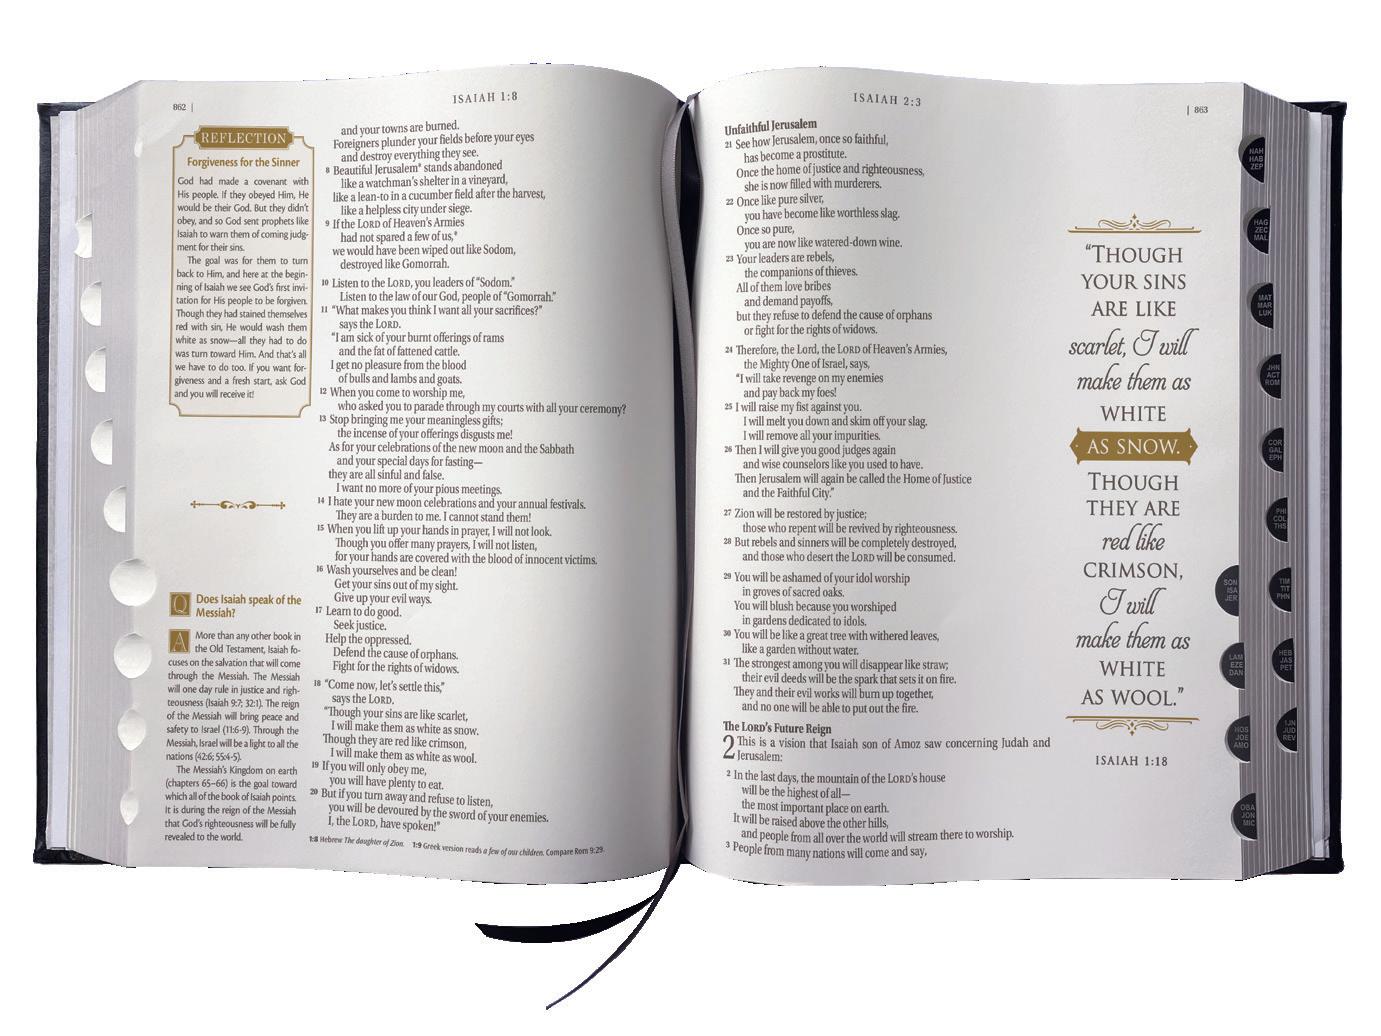 862 |
ISAIAH 1:8
REFLECTION
Forgiveness for the Sinner
God had made a covenant with
His people. If they obeyed Him, He
would be their God. But they didn't
obey, and so God sent prophets like
Isaiah to warn them of coming judg-
ment for their sins.
The goal was for them to turn
back to Him, and here at the begin-
ning of Isaiah we see God's first invi-
tation for His people to be forgiven.
Though they had stained themselves
red with sin, He would wash them
white as snow—all they had to do
was turn toward Him. And that's all
we have to do too. If you want for-
giveness and a fresh start, ask God
and you will receive it!
Q Does Isaiah speak of the
Messiah?
A More than any other book in
the Old Testament, Isaiah fo-
cuses on the salvation that will come
through the Messiah. The Messiah
will one day rule in justice and righ-
teousness (Isaiah 9:7; 32:1). The reign
of the Messiah will bring peace and
safety to Israel (11:6-9). Through the
Messiah, Israel will be a light to all the
nations (42:6; 55:4-5).
The Messiah's Kingdom on earth
(chapters 65–66) is the goal toward
which all of the book of Isaiah points.
It is during the reign of the Messiah
that God's righteousness will be fully
revealed to the world.
and your towns are burned.
Foreigners plunder your fields before your eyes
and destroy everything they see.
8 Beautiful Jerusalem* stands abandoned
like a watchman's shelter in a vineyard,
like a lean-to in a cucumber field after the harvest,
like a helpless city under siege.
9 If the LORD of Heaven's Armies
had not spared a few of us,*
we would have been wiped out like Sodom,
destroyed like Gomorrah.
10 Listen to the LORD, you leaders of "Sodom."
Listen to the law of our God, people of "Gomorrah."
11 "What makes you think I want all your sacrifices?"
says the LORD.
"I am sick of your burnt offerings of rams
and the fat of fattened cattle.
I get no pleasure from the blood
of bulls and lambs and goats.
12 When you come to worship me,
who asked you to parade through my courts with all your ceremony?
13 Stop bringing me your meaningless gifts;
the incense of your offerings disgusts me!
As for your celebrations of the new moon and the Sabbath
and your special days for fasting—
they are all sinful and false.
I want no more of your pious meetings.
14 I hate your new moon celebrations and your annual festivals.
They are a burden to me. I cannot stand them!
15 When you lift up your hands in prayer, I will not look.
Though you offer many prayers, I will not listen,
for your hands are covered with the blood of innocent victims.
16 Wash yourselves and be clean!
Get your sins out of my sight.
Give up your evil ways.
17 Learn to do good.
Seek justice.
Help the oppressed.
Defend the cause of orphans.
Fight for the rights of widows.
18 "Come now, let's settle this,"
says the LORD.
"Though your sins are like scarlet,
I will make them as white as snow.
Though they are red like crimson,
I will make them as white as wool.
19 If you will only obey me,
you will have plenty to eat.
20 But if you turn away and refuse to listen,
you will be devoured by the sword of your enemies.
I, the LORD, have spoken!"
1:8 Hebrew The daughter of Zion. 1:9 Greek version reads a few of our children. Compare Rom 9:29.
ISAIAH 2:3
| 863
Unfaithful Jerusalem
21 See how Jerusalem, once so faithful,
has become a prostitute.
Once the home of justice and righteousness,
she is now filled with murderers.
22 Once like pure silver,
you have become like worthless slag.
Once so pure,
you are now like watered-down wine.
23 Your leaders are rebels,
the companions of thieves.
All of them love bribes
and demand payoffs,
but they refuse to defend the cause of orphans
or fight for the rights of widows.
24 Therefore, the Lord, the LORD of Heaven's Armies,
the Mighty One of Israel, says,
"I will take revenge on my enemies
and pay back my foes!
25 I will raise my fist against you.
I will melt you down and skim off your slag.
I will remove all your impurities.
26 Then I will give you good judges again
and wise counselors like you used to have.
Then Jerusalem will again be called the Home of Justice
and the Faithful City."
27 Zion will be restored by justice;
those who repent will be revived by righteousness.
28 But rebels and sinners will be completely destroyed,
and those who desert the LORD will be consumed.
29 You will be ashamed of your idol worship
in groves of sacred oaks.
You will blush because you worshiped
in gardens dedicated to idols.
30 You will be like a great tree with withered leaves,
like a garden without water.
31 The strongest among you will disappear like straw;
their evil deeds will be the spark that sets it on fire.
They and their evil works will burn up together,
and no one will be able to put out the fire.
The LORD's Future Reign
2 This is a vision that Isaiah son of Amoz saw concerning Judah and
Jerusalem:
2 In the last days, the mountain of the LORD's house
will be the highest of all—
the most important place on earth.
It will be raised above the other hills,
and people from all over the world will stream there to worship.
3 People from many nations will come and say,
"THOUGH
YOUR SINS
ARE LIKE
scarlet, I will
make them as
WHITE
AS SNOW.
THOUGH
THEY ARE
red like
CRIMSON,
I will
make them as
WHITE
AS WOOL."
ISAIAH 1:18
NAH
HAB
ZEP
HAG
ZEC
MAL
MAT
MAR
LUK
JHN
ACT
ROM
COR
GAL
EPH
PHI
COL
THS
SON
ISA
JER
TIM
TIT
PHN
LAM
EZE
DAN
HEB
JAS
PET
HOS
JOE
AMO
IJN
JUD
REV
OBA
JON
MIC